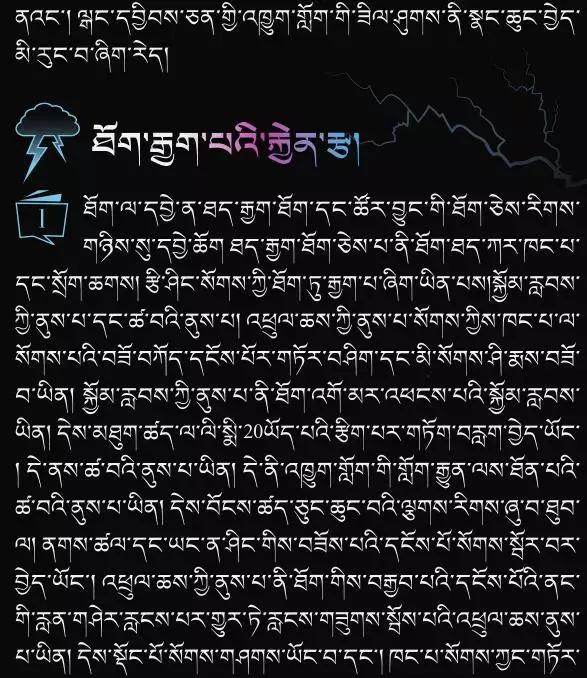 ནའང་། ལྷང་དབྱིབས་ཅན་གྱི་འཁྱུག་གློག་གི་ཟིལ་ཤུགས་ནི་སྣང་ཆུང་བྱེད་
མི་རུང་བ་ཞིག་རེད།
ཐོག་རྒྱག་པའི་རྐྱེན་རྩ།
1
ཐོག་ལ་དབྱེ་ན་ཐད་རྒྱག་ཐོག་དང་ཚོར་བྱུང་གི་ཐོག་ཅེས་རིགས་
གཉིས་སུ་དབྱེ་ཆོག ཐད་རྒྱག་ཐོག་ཅེས་པ་ནི་ཐོག་ཐད་ཀར་ཁང་པ་
དང་སྲོག་ཆགས། རྩི་ཤིང་སོགས་ཀྱི་ཐོག་ཏུ་རྒྱག་པ་ཞིག་ཡིན་པས།སྐྱོམ་རླབས་
ཀྱི་ནུས་པ་དང་ཚ་བའི་ནུས་པ། འཕྲུལ་ཆས་ཀྱི་ནུས་པ་སོགས་ཀྱིས་ཁང་པ་ལ་
སོགས་པའི་བཟོ་བཀོད་དངོས་པོར་གཏོར་བཤིག་དང་མི་སོགས་ཤི་རྨས་བཟོ་
བ་ཡིན། སྐྱོམ་རླབས་ཀྱི་ནུས་པ་ནི་ཐོག་འགོ་མར་འཕངས་པའི་སྐྱོམ་རླབས་
ཡིན། དེས་མཐུག་ཚད་ལ་ལི་སྨི་20ཡོད་པའི་རྩིག་པར་གཏོག་བརླག་བྱེད་ཡོང་
། དེ་ནས་ཚ་བའི་ནུས་པ་ཡིན། དེ་ནི་འཁྱུག་གློག་གི་གློག་རྒྱུན་ལས་ཐོན་པའི་
ཚ་བའི་ནུས་པ་ཡིན། དེས་བོངས་ཚད་ཅུང་ཆུང་བའི་ལྕགས་རིགས་ཞུ་བ་ཐུབ་
ལ། ནགས་ཚལ་དང་ཡང་ན་ཤིང་གིས་བཟོས་པའི་དངོས་པོ་སོགས་སྤོར་བར་
བྱེད་ཡོང་། འཕྲུལ་ཆས་ཀྱི་ནུས་པ་ནི་ཐོག་གིས་བརྒྱབ་པའི་དངོས་པོའི་ནང་
གི་རླན་གཤེར་རླངས་པར་གྱུར་ཏེ་རླངས་གཟུགས་སྦོས་པའི་འཕྲུལ་ཆས་ནུས་
པ་ཡིན། དེས་སྡོང་པོ་སོགས་གཤགས་ཡོང་བ་དང་། ཁང་པ་སོགས་ཀྱང་གཏོར་